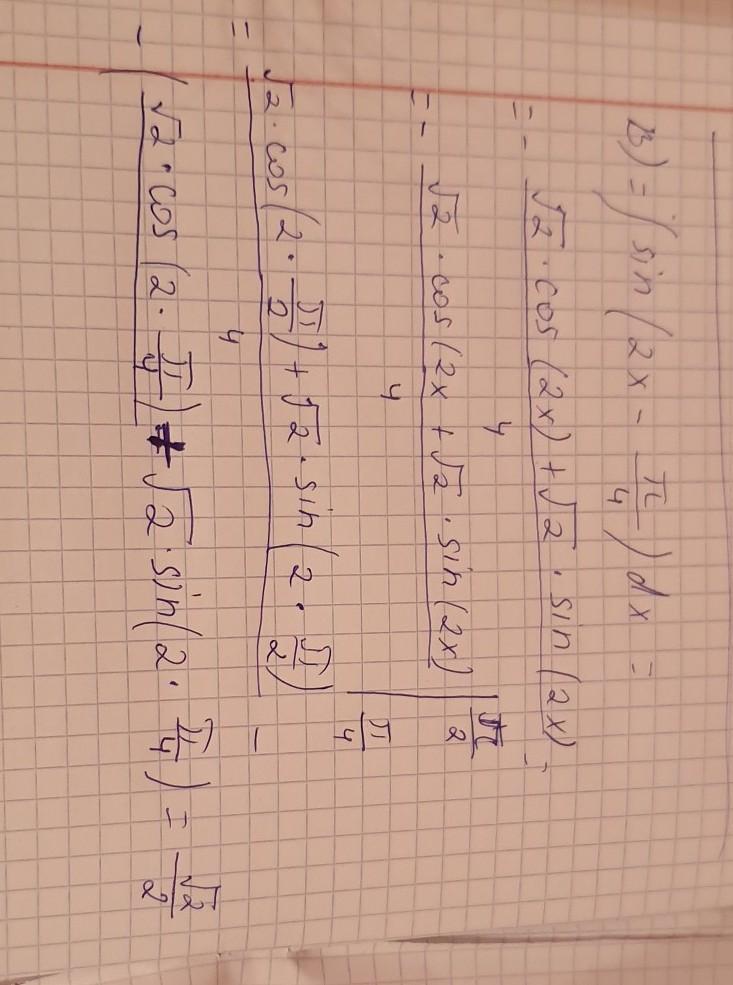 B) = ∫ sin (2x - π/4) dx =
= - (√2 · cos (2x) + √2 · sin (2x))/4 ;
= - (√2 · cos (2x + √2 · sin (2x))/4 | π/2 π/4
= (√2 · cos (2 · π/2) + √2 · sin (2 · π/2))/4 -
- (√2 · cos (2 · π/4) + √2 · sin (2 · π/4) = √2/2